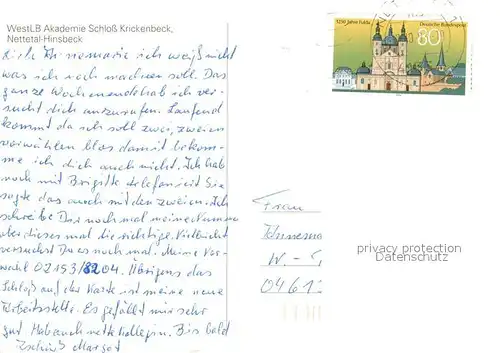 WestLB Akademie Schloß Krickenbeck,
Nettetal-Hinsbeck
ich weiß nicht
was ich noch machen soll. Das
ganze Wochenende hab ich ver-
sucht dich anzurufen. Laufend
kommt da ich soll zwei, zweien
vorwählen blos damit bekom-
me ich dich auch nicht. Ich hab
noch mit Brigitte telefoniert Sie
sagte das auch mit den zweien. Ich
schreibe Dir noch mal meine Nummer
aber dieses mal die richtige. Vielleicht
versuchst Du es noch mal. Meine Vor-
wahl 02153/8204. Übrigens das
Schloß auf der Karte ist meine neue
Arbeitsstelle. Es gefällt mir sehr
gut Hab auch nette Kollegin. Bis bald
Tschüß Margot
1250 Jahre Fulda
Deutsche Bundespost
80
Frau
W.-
0461
privacy protection
Datenschutz